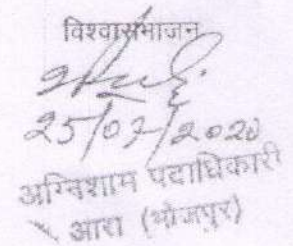 विश्वासभाजन
25/07/2020
अग्निशाम पदाधिकारी
आरा (भोजपुर)